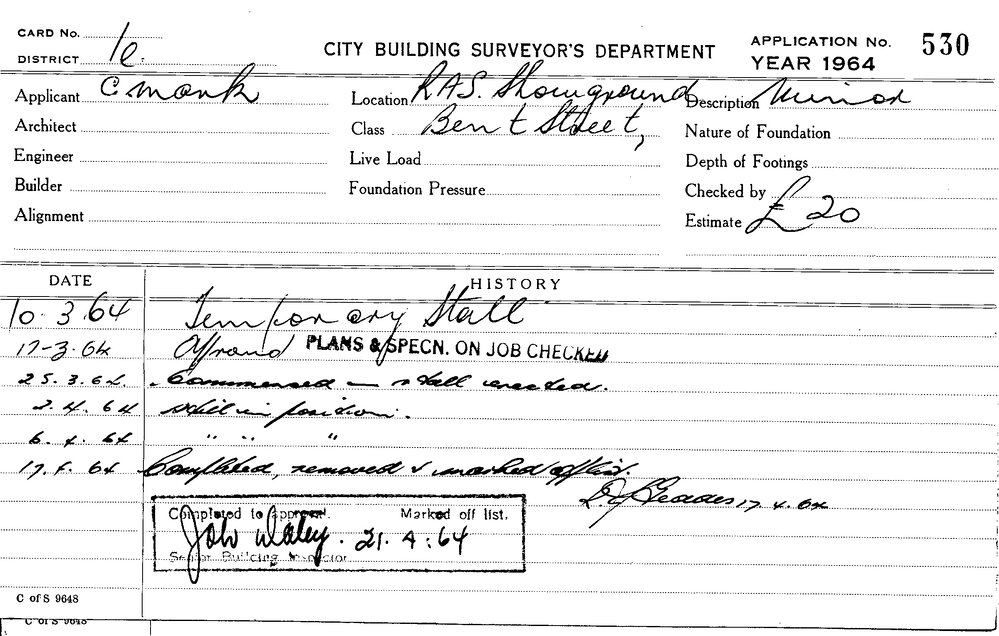 CARD No.
DISTRICT 1e.
CITY BUILDING SURVEYOR'S DEPARTMENT
APPLICATION No. 530
YEAR 1964
Applicant C Monk
Location R.A.S. Showground
Description Minor
Architect
Class Bent Street,
Nature of Foundation
Engineer
Live Load
Depth of Footings
Builder
Foundation Pressure
Checked by
Alignment
Estimate £20
DATE HISTORY
10.3.64 Temporary Stall
17-3.64 PLANS & SPECN. ON JOB CHECKED
25.3.64. Commenced — stall erected.
2.4.64 still in position.
6.4.64 " " "
17.4.64 Completed, removed & marked off list.
17.4.64
Completed to approval. Marked off list.
21.4:64
Senior Building Inspector
C of S 9648
C of S 9648